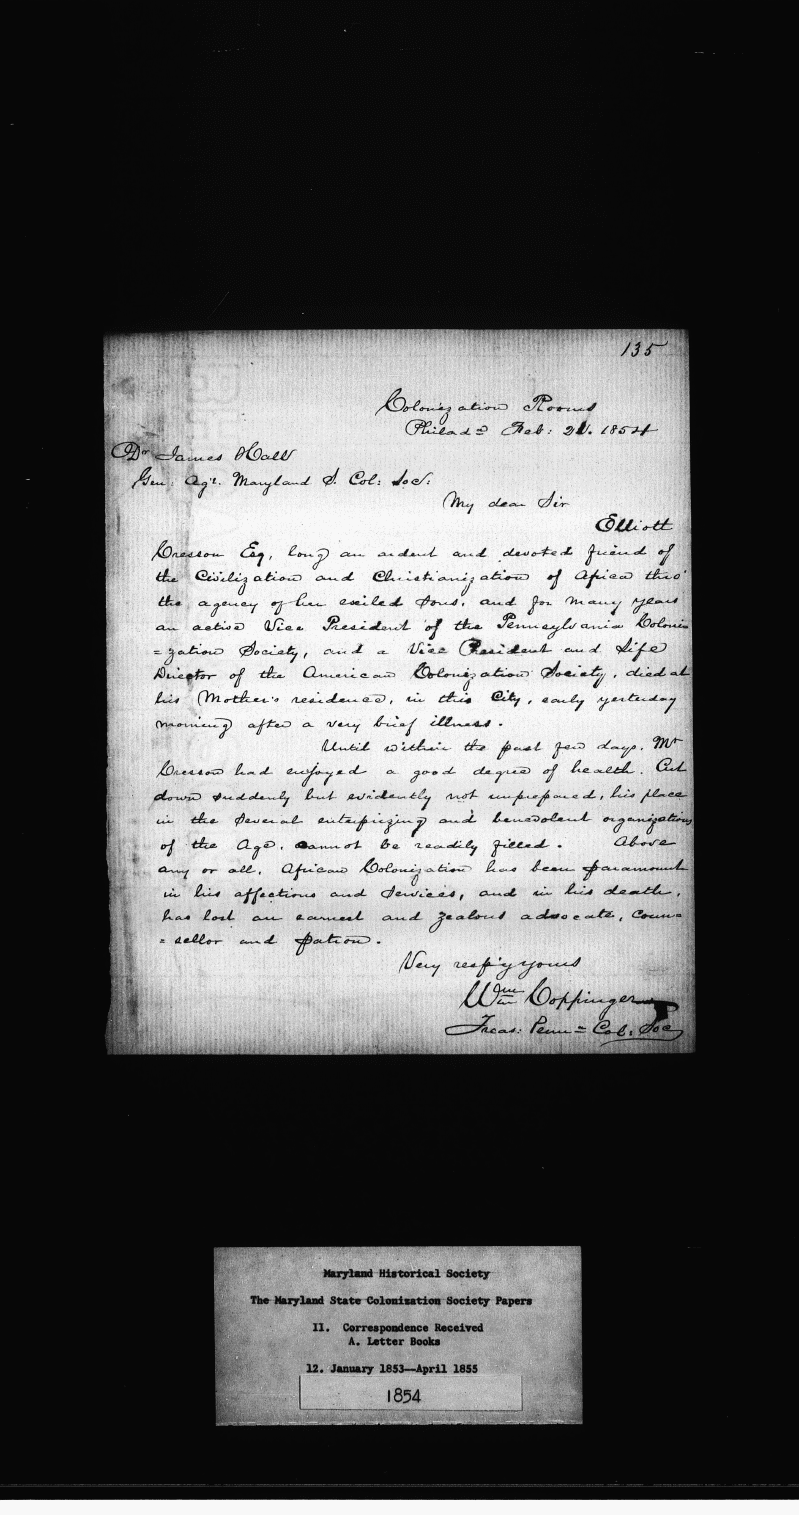 135
Colonization Rooms
Philada Feb: 21. 1854
Dr James Hall
Gen: Agt. Maryland S. Col: Soc:
My dear Sir
Elliott
Cresson Esq, long an ardent and devoted friend of
the Civilization and Christianization of Africa thro'
the agency of her exiled sons, and for many years
an active Vice President of the Pennsylvania Coloni
=zation Society, and a Vice President and Life
Director of the American Colonization Society, died at
his Mother's residence, in this City, early yesterday
morning after a very brief illness.
Until within the past few days, Mr
Cresson had enjoyed a good degree of health. Cut
down suddenly but evidently not unprepared, his place
in the several enterprizing and benevolent organizations
of the Age, cannot be readily filled. Above
any or all, African Colonization has been paramount
in his affections and services, and in his death,
has lost an earnest and zealous advocate, coun=
=sellor and patron.
Very resp'y yours
Wm Coppinger
Treas: Penna Col: Soc
Maryland Historical Society
The Maryland State Colonization Society Papers
II. Correspondence Received
A. Letter Books
12. January 1853—April 1855
1854